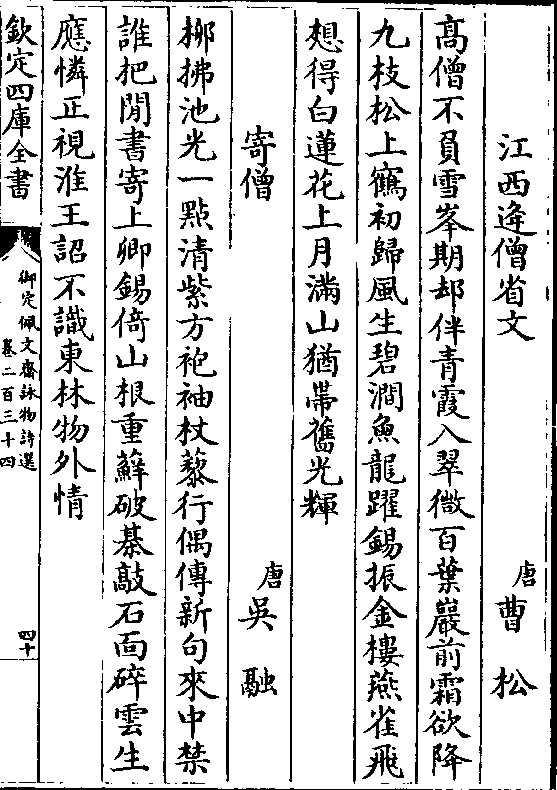 江西逄僧省文　唐曹松
高僧不負雪峯期却伴青霞入翠微百葉巖前霜欲降
九枝松上鶴初歸風生碧澗魚龍躍錫振金樓燕雀飛
想得白蓮花上月滿山猶帶舊光輝
寄僧　唐吳融
栁拂池光一點清紫方袍袖杖藜行偶傳新句來中禁
誰把閒書寄上卿錫倚山根重蘚破棊敲石面碎雲生
應憐正視淮王詔不識東林物外情
欽定四庫全書
御定佩文齋詠物詩選
卷二百三十四
四十